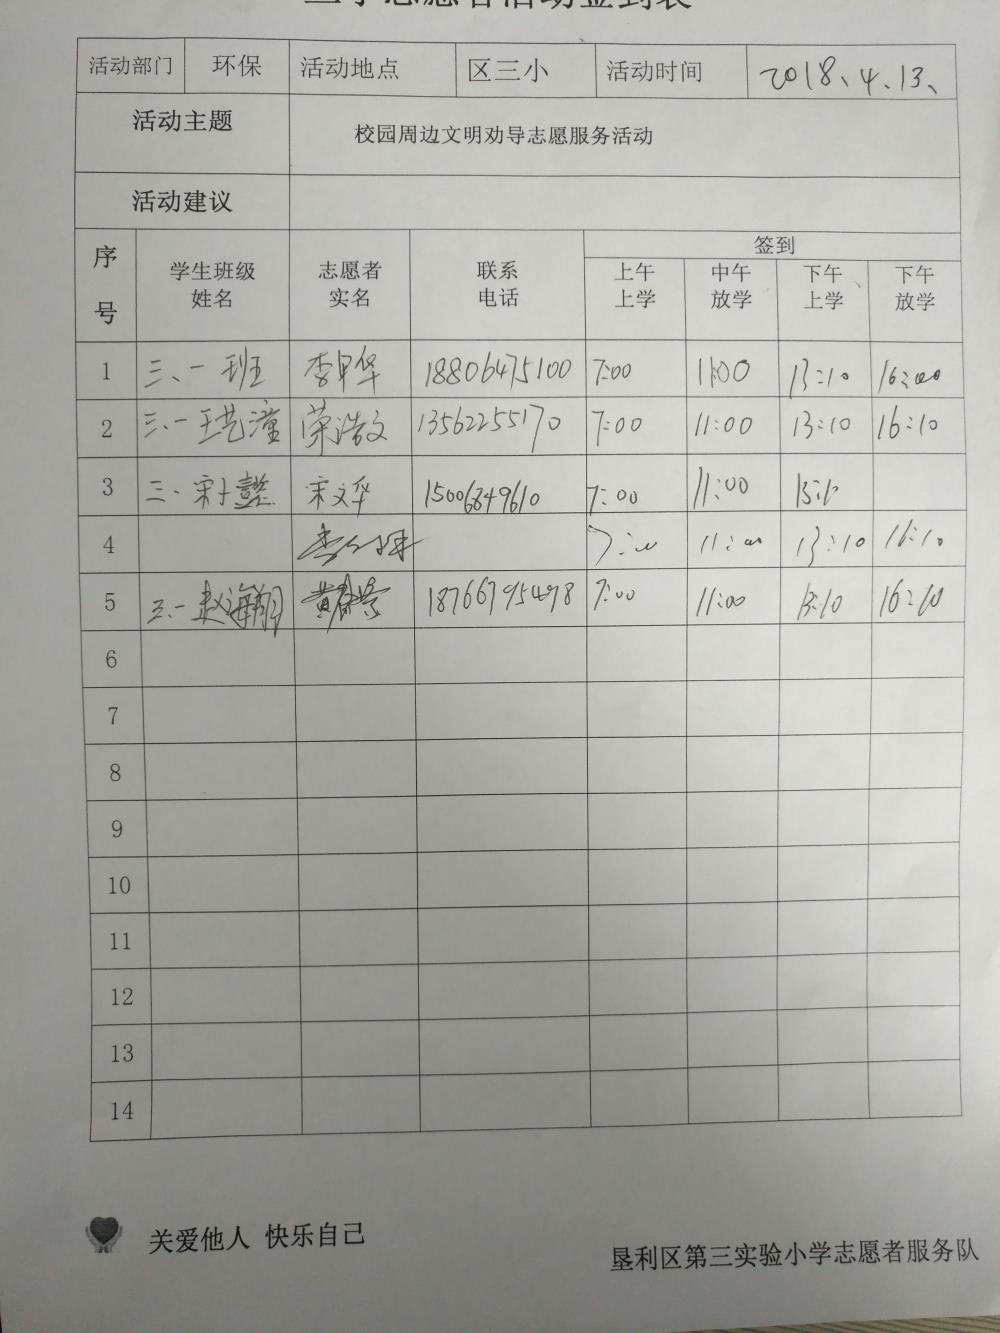 活动部门 环保 活动地点 区三小 活动时间 2018、4、13、
活动主题 校园周边文明劝导志愿服务活动
活动建议
序号 学生班级姓名 志愿者实名 联系电话 签到
上午上学 中午放学 下午上学 下午放学
1 三、一班 李早华 18806475100 7:00 11:00 13:10 16:00
2 三、一王艺潼 荣浩文 13562255170 7:00 11:00 13:10 16:10
3 三、宋 宋文华 15006849610 7:00 11:00
4 7:00 11:00 13:10 16:10
5 三、一赵海翔 黄 18766795498 7:00 11:00 13:10 16:10
6
7
8
9
10
11
12
13
14
关爱他人 快乐自己
垦利区第三实验小学志愿者服务队